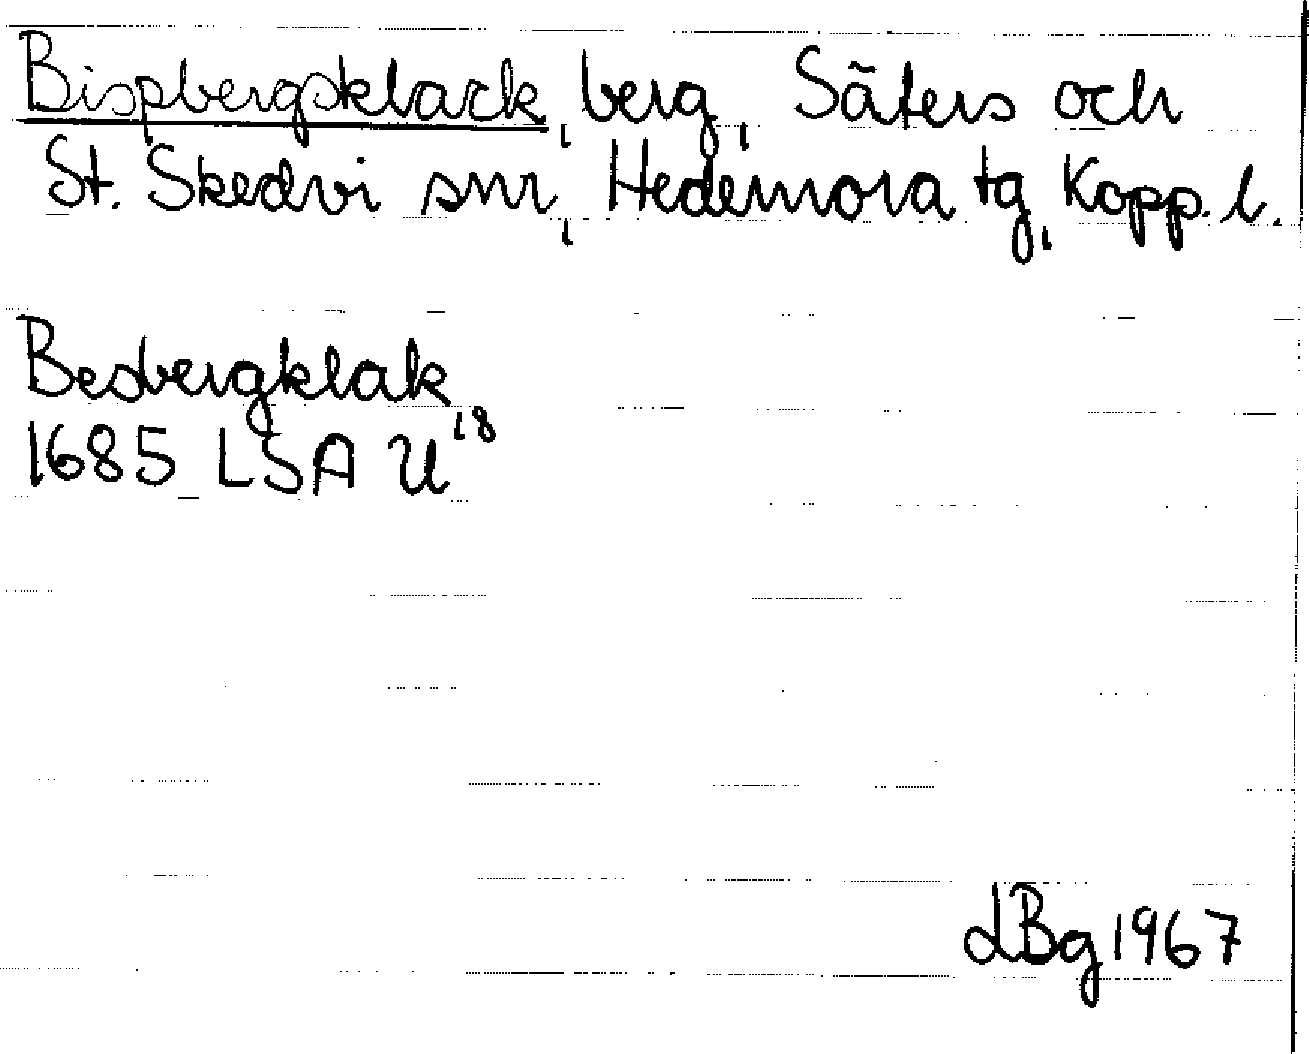 Bispbergsklack, berg, Säters och
St. Skedvi snr, Hedemora tg, Kopp. l.
Besbergklak
1685 LSA U¹⁸
LBg 1967